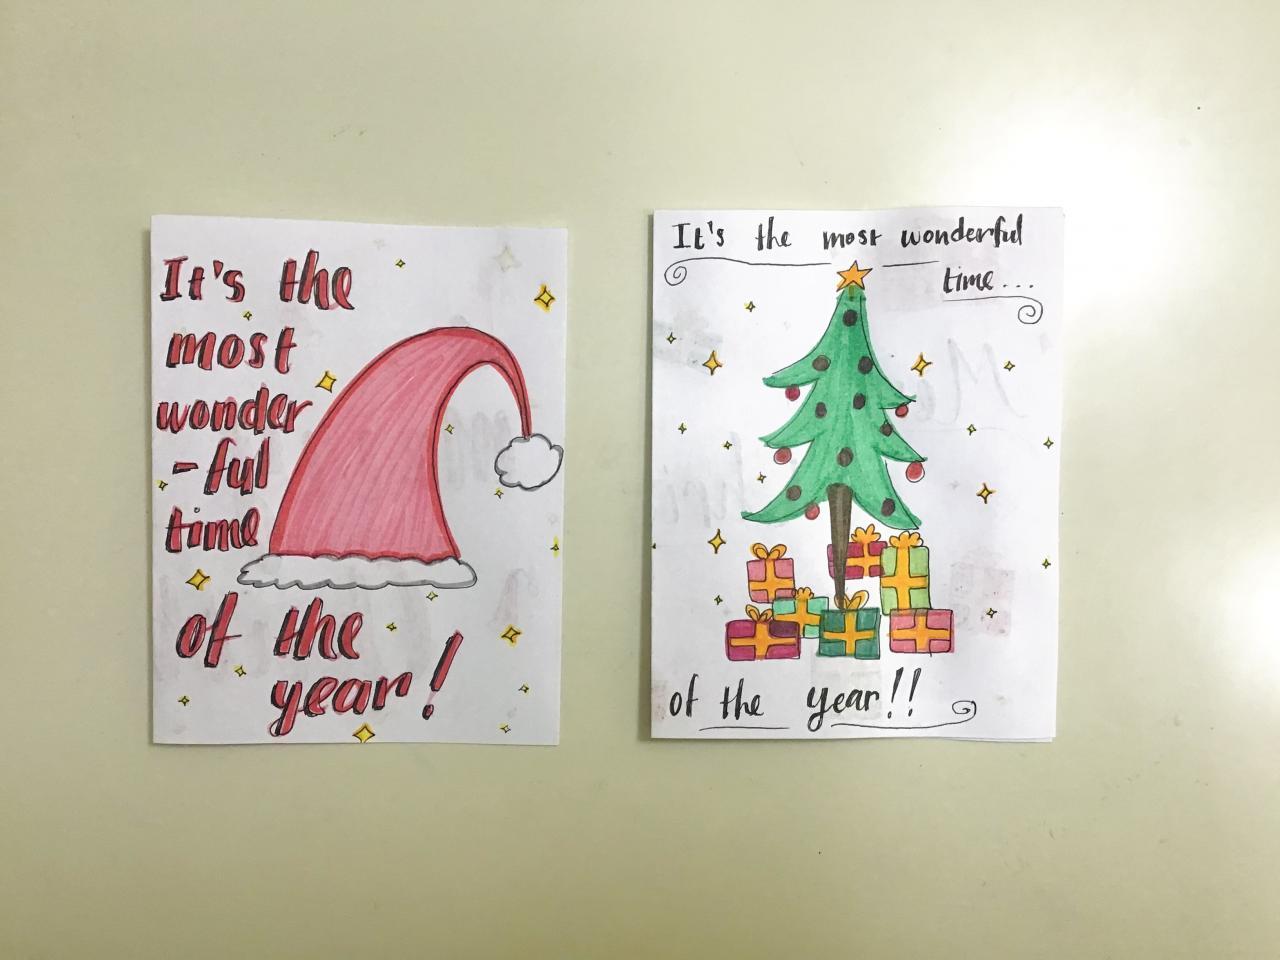 It's the
most
wonder
-ful
time
of the
year!
It's the most wonderful
time...
of the year!!